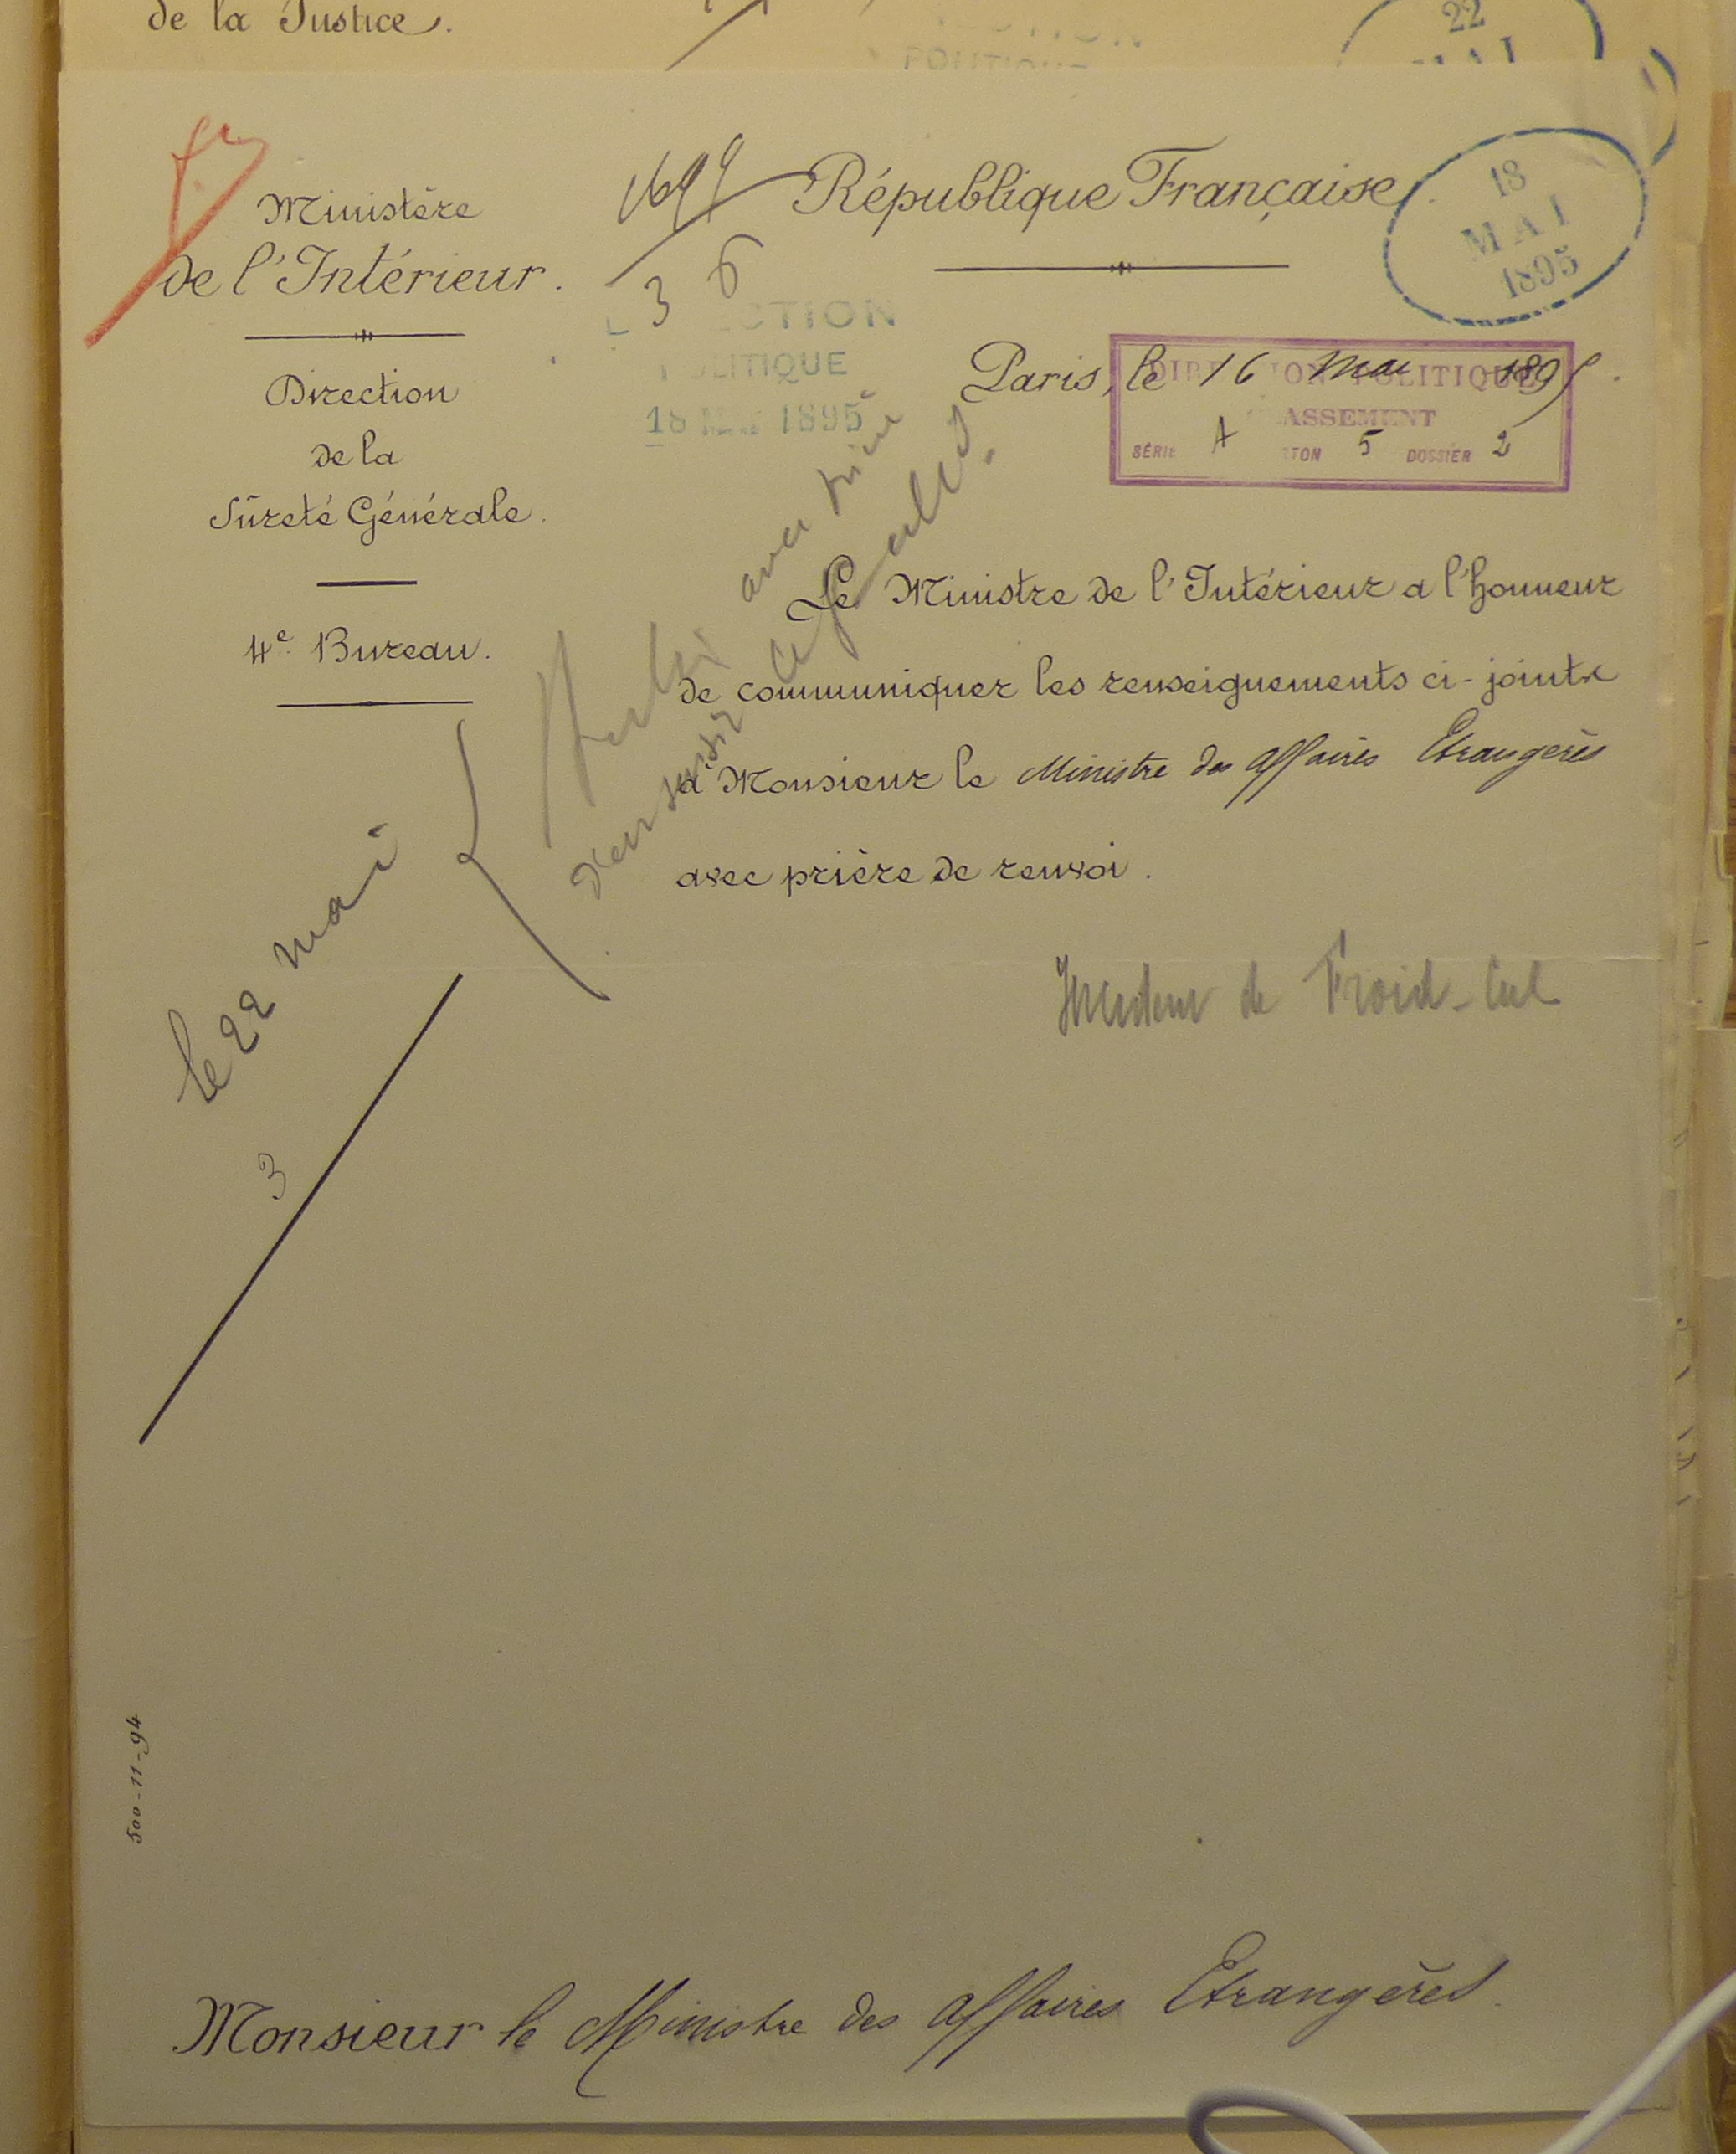 de la Justice.
22
MAI
POLITIQUE
Ministère
de l'Intérieur.
Direction
de la
Sûreté Générale.
4e. Bureau.
1699
36
République Française.
18
MAI
1895
POLITIQUE
18 MAI 1895
Paris, le 16 Mai 1895.
DIRECTION POLITIQUE
CLASSEMENT
SÉRIE A CARTON 5 DOSSIER 2
Le Ministre de l'Intérieur a l'honneur
de communiquer les renseignements ci-joints
à Monsieur le Ministre des Affaires Etrangères
avec prière de renvoi.
avec prière
le 22 mai
3
de Froid-Cul
500-11-94
Monsieur le Ministre des Affaires Etrangères.